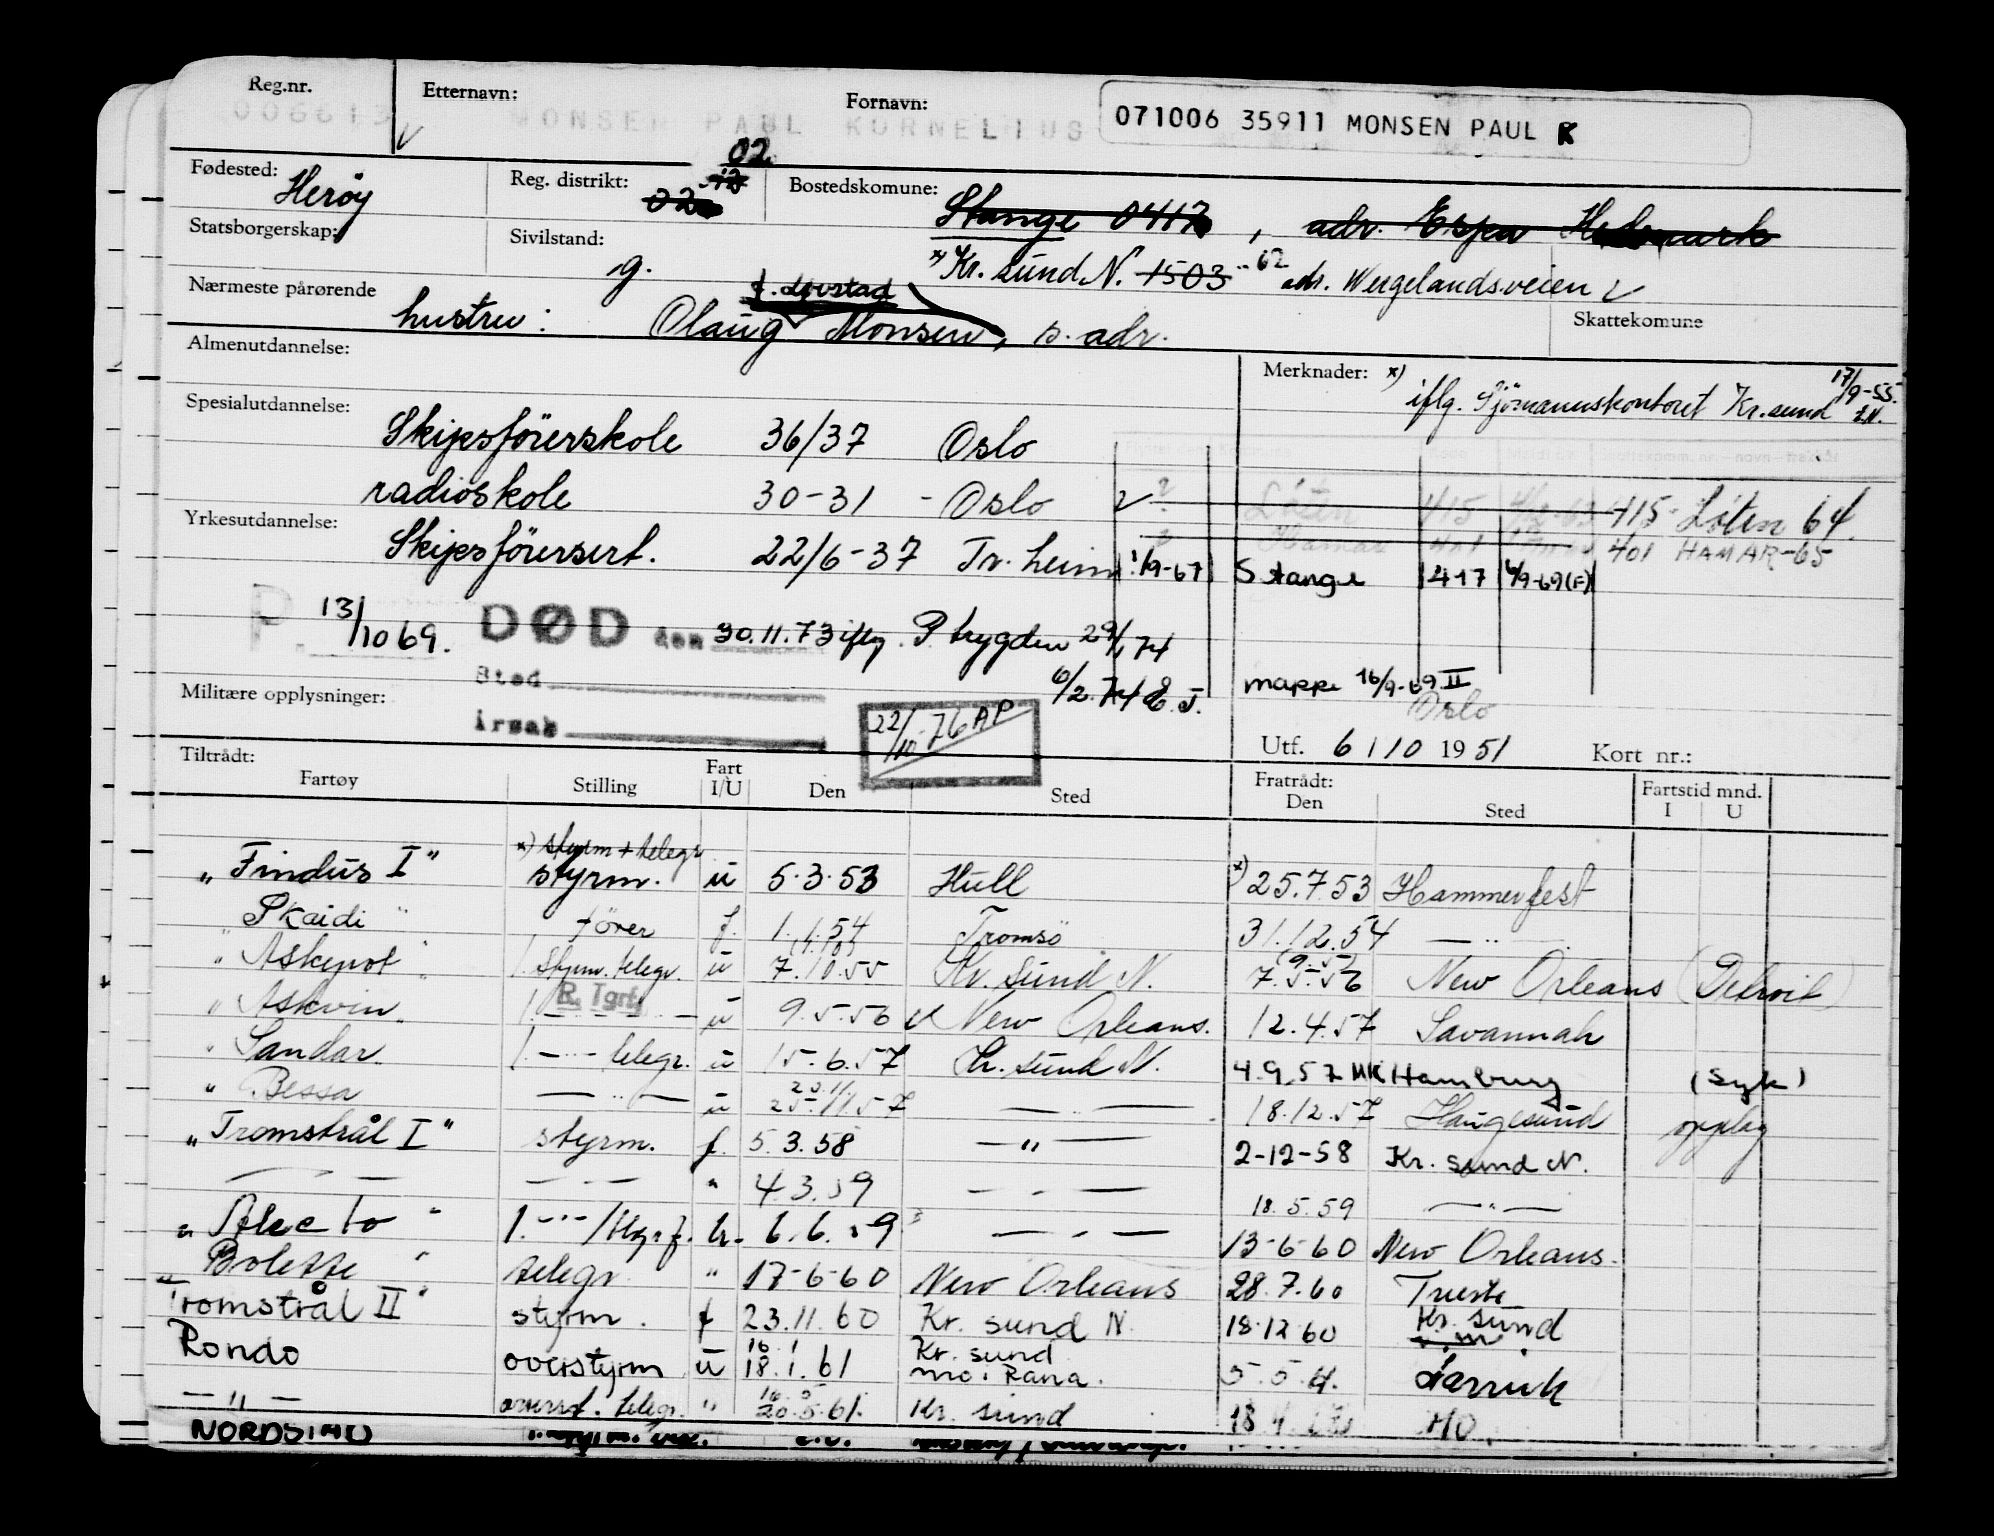 Reg.nr. Etternavn: Fornavn:
006613 MONSEN PAUL KORNELIUS 071006 35911 MONSEN PAUL K
02
Fødested: Herøy Reg. distrikt: 02 Bostedskomune: Stange 0417, adr. Espa Hedmark
Statsborgerskap: Sivilstand: g. x) Kr. sund N. 1503 62 adr. Wergelandsveien 2
Nærmeste pårørende hustru: Olaug Monsen, s. adr. Skattekomune
Almenutdannelse: Merknader: x) iflg. Sjömannskontoret Kr.sund 17/9-55
Spesialutdannelse: Skipsförerskole 36/37 Oslo
radioskole 30-31 - Oslo
Løten 415 415 Løten 64
Yrkesutdannelse: Skipsförersert. 22/6-37 Tr. heim
Hamar 401 401 HAMAR-65
1/9-67 Stange 417 9-69(F)
P. 13/10 69. DØD den 30.11.73 iflg. P trygden 29/1 74
Sted 6/2.74 E.J. mappe 16/9-69 II
Oslo
Militære opplysninger: Årsak 22/10-76 AP
Utf. 6/10 1951 Kort nr.:
Tiltrådt: Fartøy Stilling Fart I/U Den Sted Fratrådt: Den Sted Fartstid mnd. I U
x) styrm + telegr
"Findus I" styrm. u 5.3.53 Hull x) 25.7.53 Hammerfest
"Skaidi" fører f. 1.1.54 Tromsö 31.12.54 — " —
"Askepot" 1. styrm. telegr. u 7.10.55 Kr. sund N. 7.5.56 New Orleans (Detroit)
R. Tgrf.
"Askvin" 1. — " — u 9.5.56 New Orleans. 12.4.57 Savannah
"Sandar 1. — " — telegr. u 15.6.57 Kr. sund N. 4.9.57 MK Hamburg (syk)
"Bessa — " — u 25.11.57 — " — 18.12.57 Haugesund opplag
"Tromstrål I" styrm. f. 5.3.58 — " — 2-12-58 Kr. sund N.
— — — — " 4.3.59 — " — 18.5.59 — " —
"Alecto" 1. — " — /tlgrf. u. 6.6.59 — " — 13-6-60 New Orleans.
Bolette" telegr " 17-6-60 New Orleans 28.7.60 Trieste
"Tromstrål II" styrm. f 23.11.60 Kr. sund N. 18.12.60 Kr. Sund
Rondo overstyrm u 16.1 18.1.61 Kr. sund mo i Rana. 5.5.61. Larvik
— " — overst. telegr. " 16.5 20.5.61. Kr. sund 18.4. MO
NORDSIMO